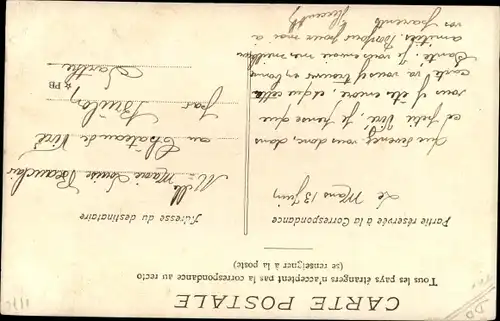 CARTE POSTALE
Tous les pays étrangers n'acceptent pas la correspondance au recto
(se renseigner à la poste)
Partie réservée à la Correspondance
Adresse du destinataire
Le Mans 13 juin
Que devenez vous donc, dans
ce joli Viré, je pense que
vous y êtes encore, et que cette
carte va vous y trouver en bonne
santé. Je vous envoie mes meilleures
amitiés. Bonjour pour moi à
vos parents
Mlle Marie Louise Beauclair
au Château de Viré
par Brûlon
Sarthe
☆ PB